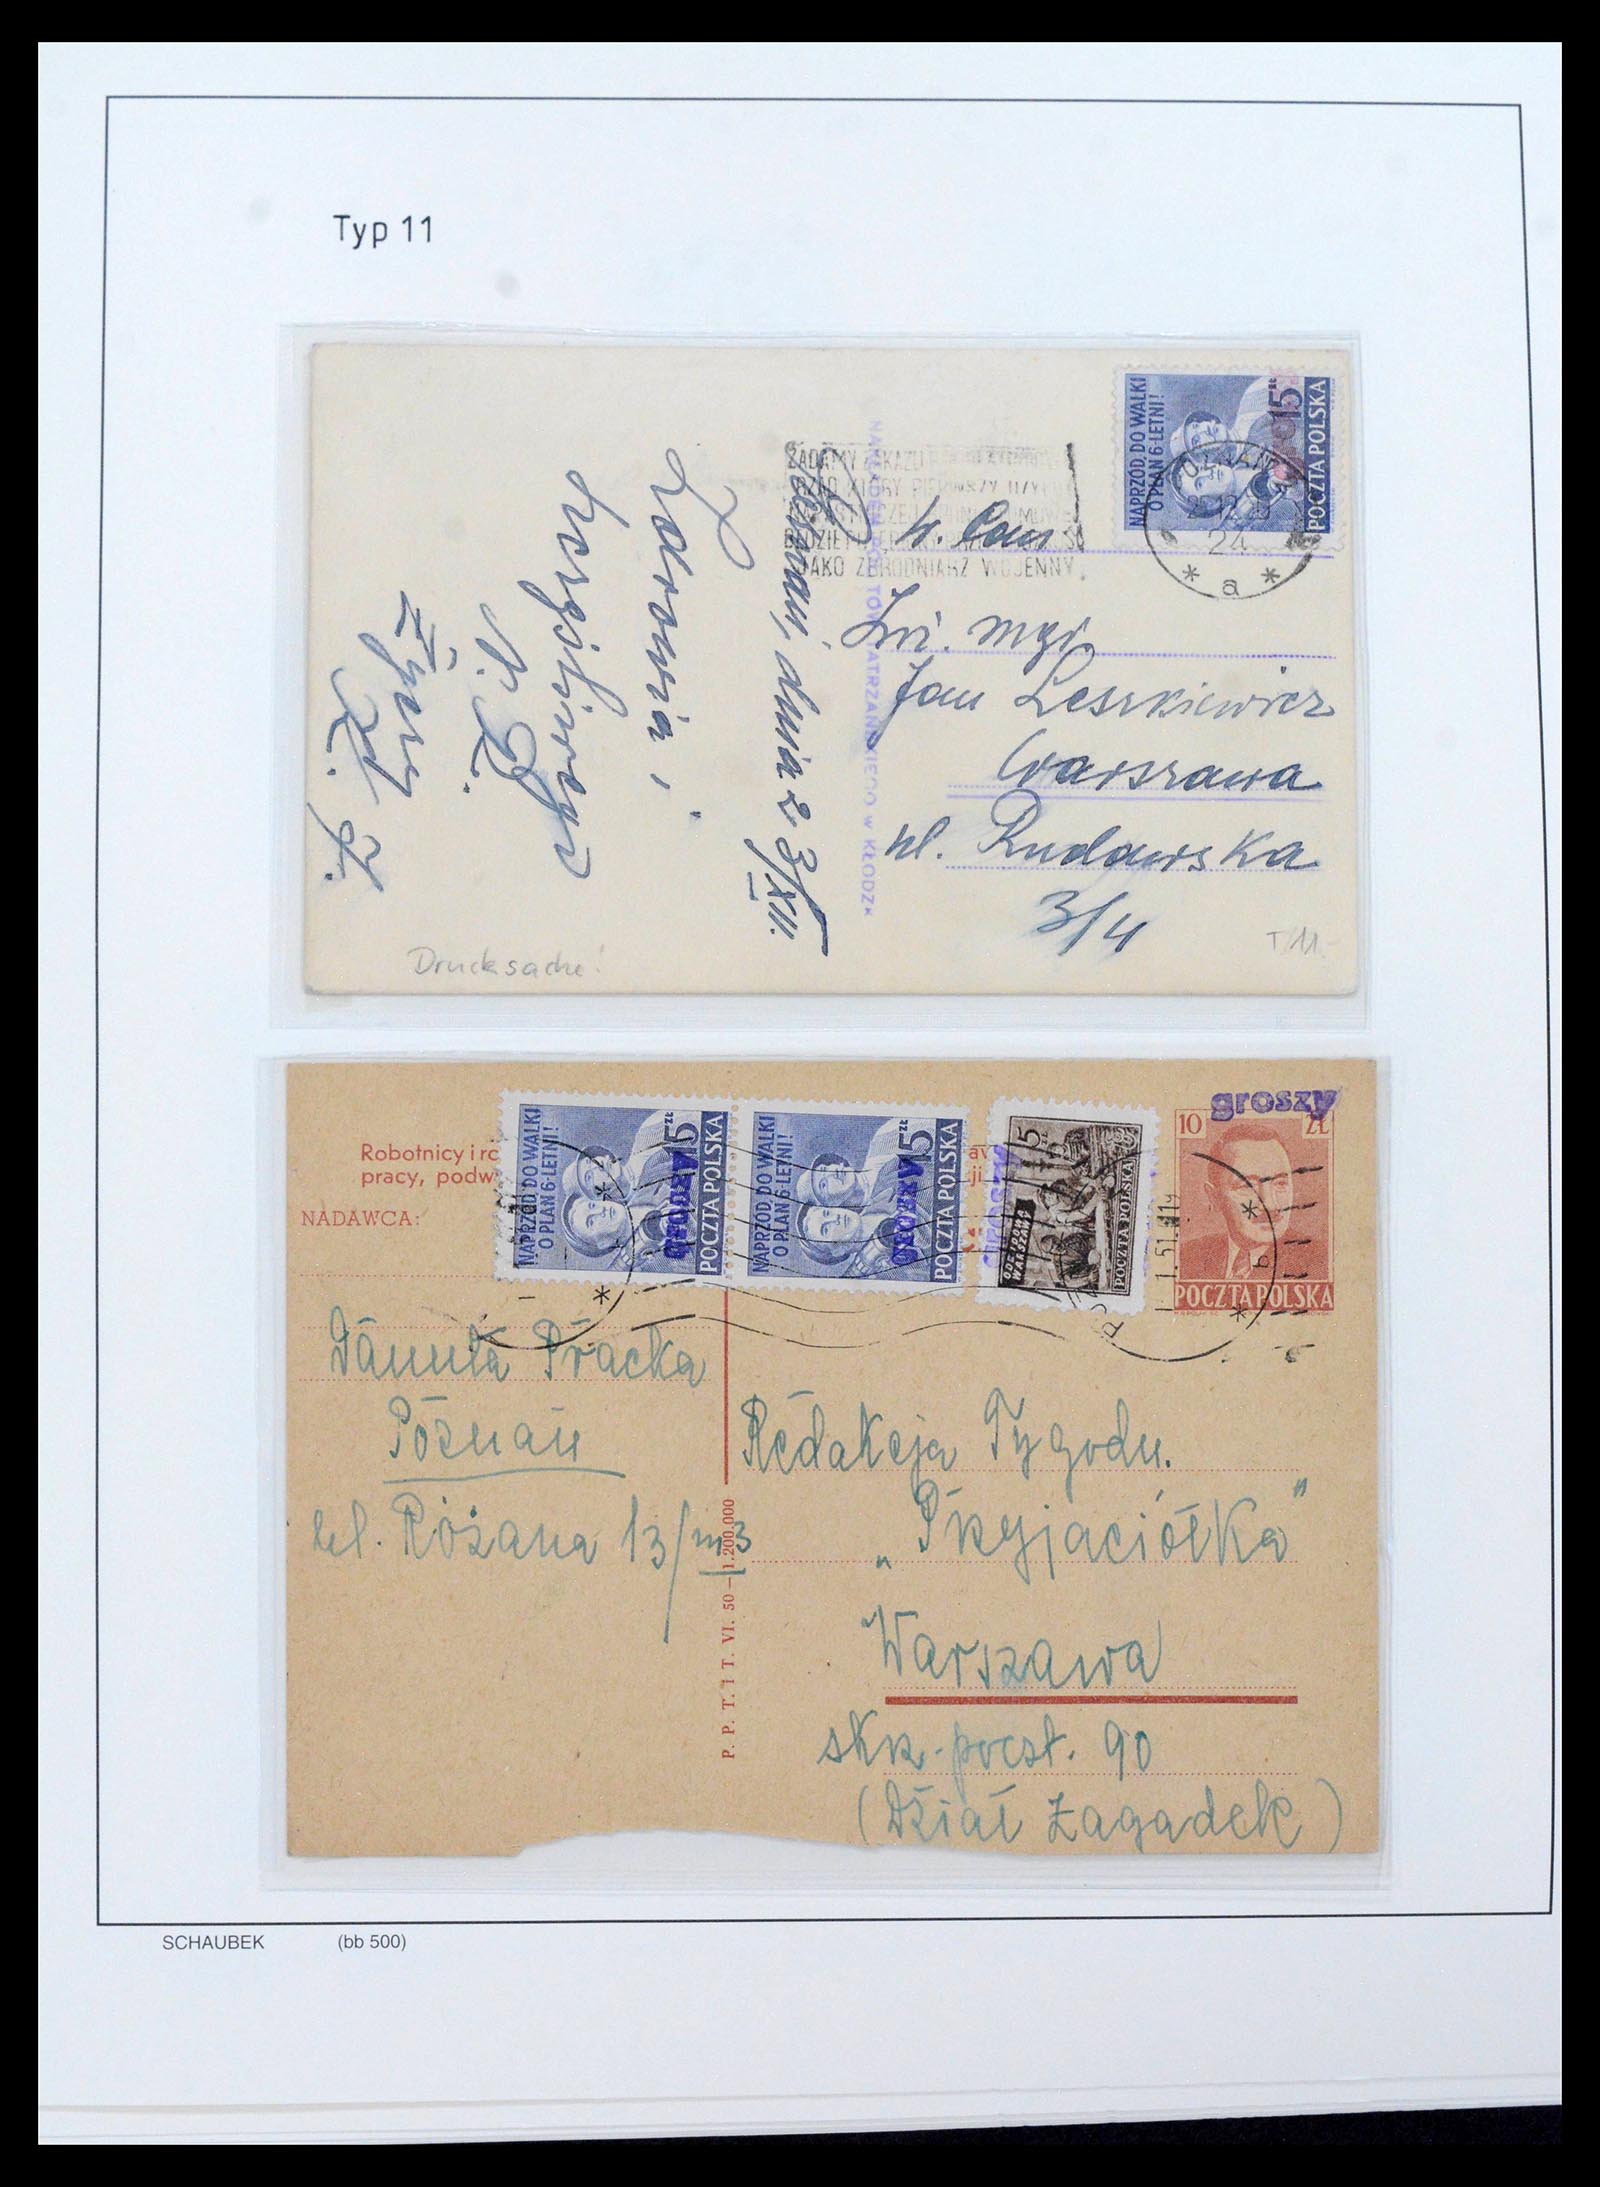 Typ 11
NAPRZÓD DO WALKI
O PLAN 6-LETNI!
15 zł
POCZTA POLSKA
24
* a *
ŻĄDAMY ZAKAZU
RZĄD KTÓRY PIERWSZY UŻYJE
BĘDZIE
JAKO ZBRODNIARZ WOJENNY
TOW. TATRZAŃSKIEGO w KŁODZK
Poznań, dnia 23/XII.
Zdrowia i
życzy
Jan Leszkiewicz
Warszawa
ul. Rudawska
3/4
Drucksache!
T/11.-
groszy
10 ZŁ
POCZTA POLSKA
Robotnicy i
pracy, podw
NADAWCA:
NAPRZÓD DO WALKI
O PLAN 6-LETNI!
15 zł
POCZTA POLSKA
GROSZY
NAPRZÓD DO WALKI
O PLAN 6-LETNI!
15 zł
POCZTA POLSKA
GROSZY
15 zł
ODBUDOWA
WARSZAWY
POCZTA POLSKA
groszy
1.51.11
b
Danuta Pracka
Poznań
ul. Różana 13/m 3
P. P. T. I T. VI. 50 — 1.200.000
Redakcja Tygodn.
„Przyjaciółka"
Warszawa
skr. poczt. 90
(Dział Zagadek)
SCHAUBEK (bb 500)